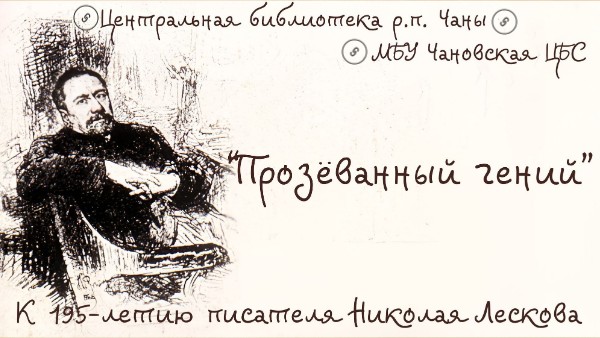 Центральная библиотека р.п. Чаны
МБУ Чановская ЦБС
"Прозёванный гений"
К 195-летию писателя Николая Лескова